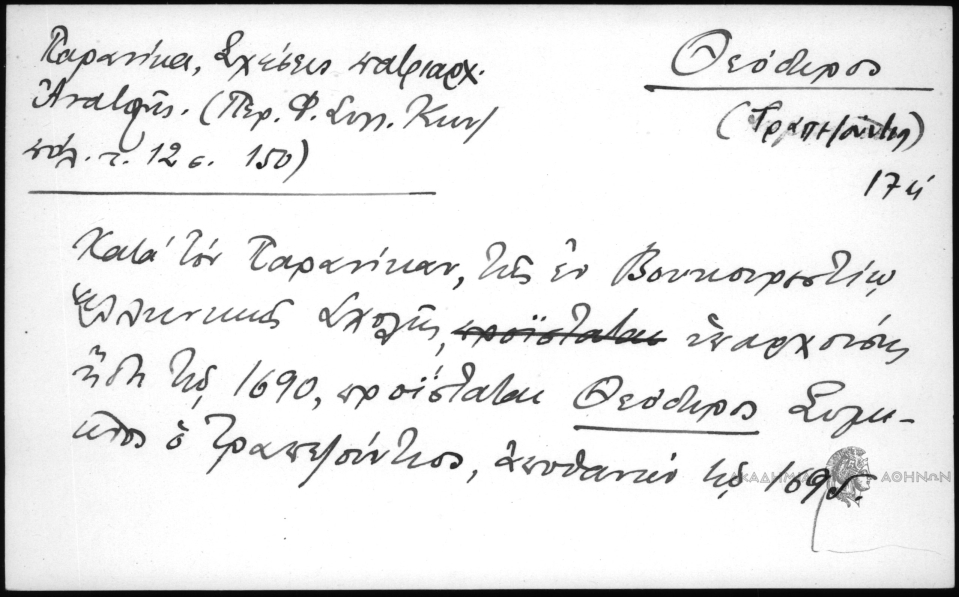 Παρανίκα, Σχέσεις πατριαρχ.
Ἀνατολῆς. (Περ. Φ. Συλ. Κων/
πόλ. τ. 12 σ. 150)
Θεόδωρος
(Τραπεζούντιος)
17 αἰ
Κατὰ τὸν Παρανίκαν, τῆς ἐν Βουκουρεστίῳ
Ἑλληνικῆς Σχολῆς, προΐσταται ὑπαρχούσης
ἤδη τῷ 1690, προΐσταται Θεόδωρος
ὁ Τραπεζούντιος, ἀποθανὼν τῷ 1695.
ΑΚΑΔΗΜΙΑ ΑΘΗΝΩΝ